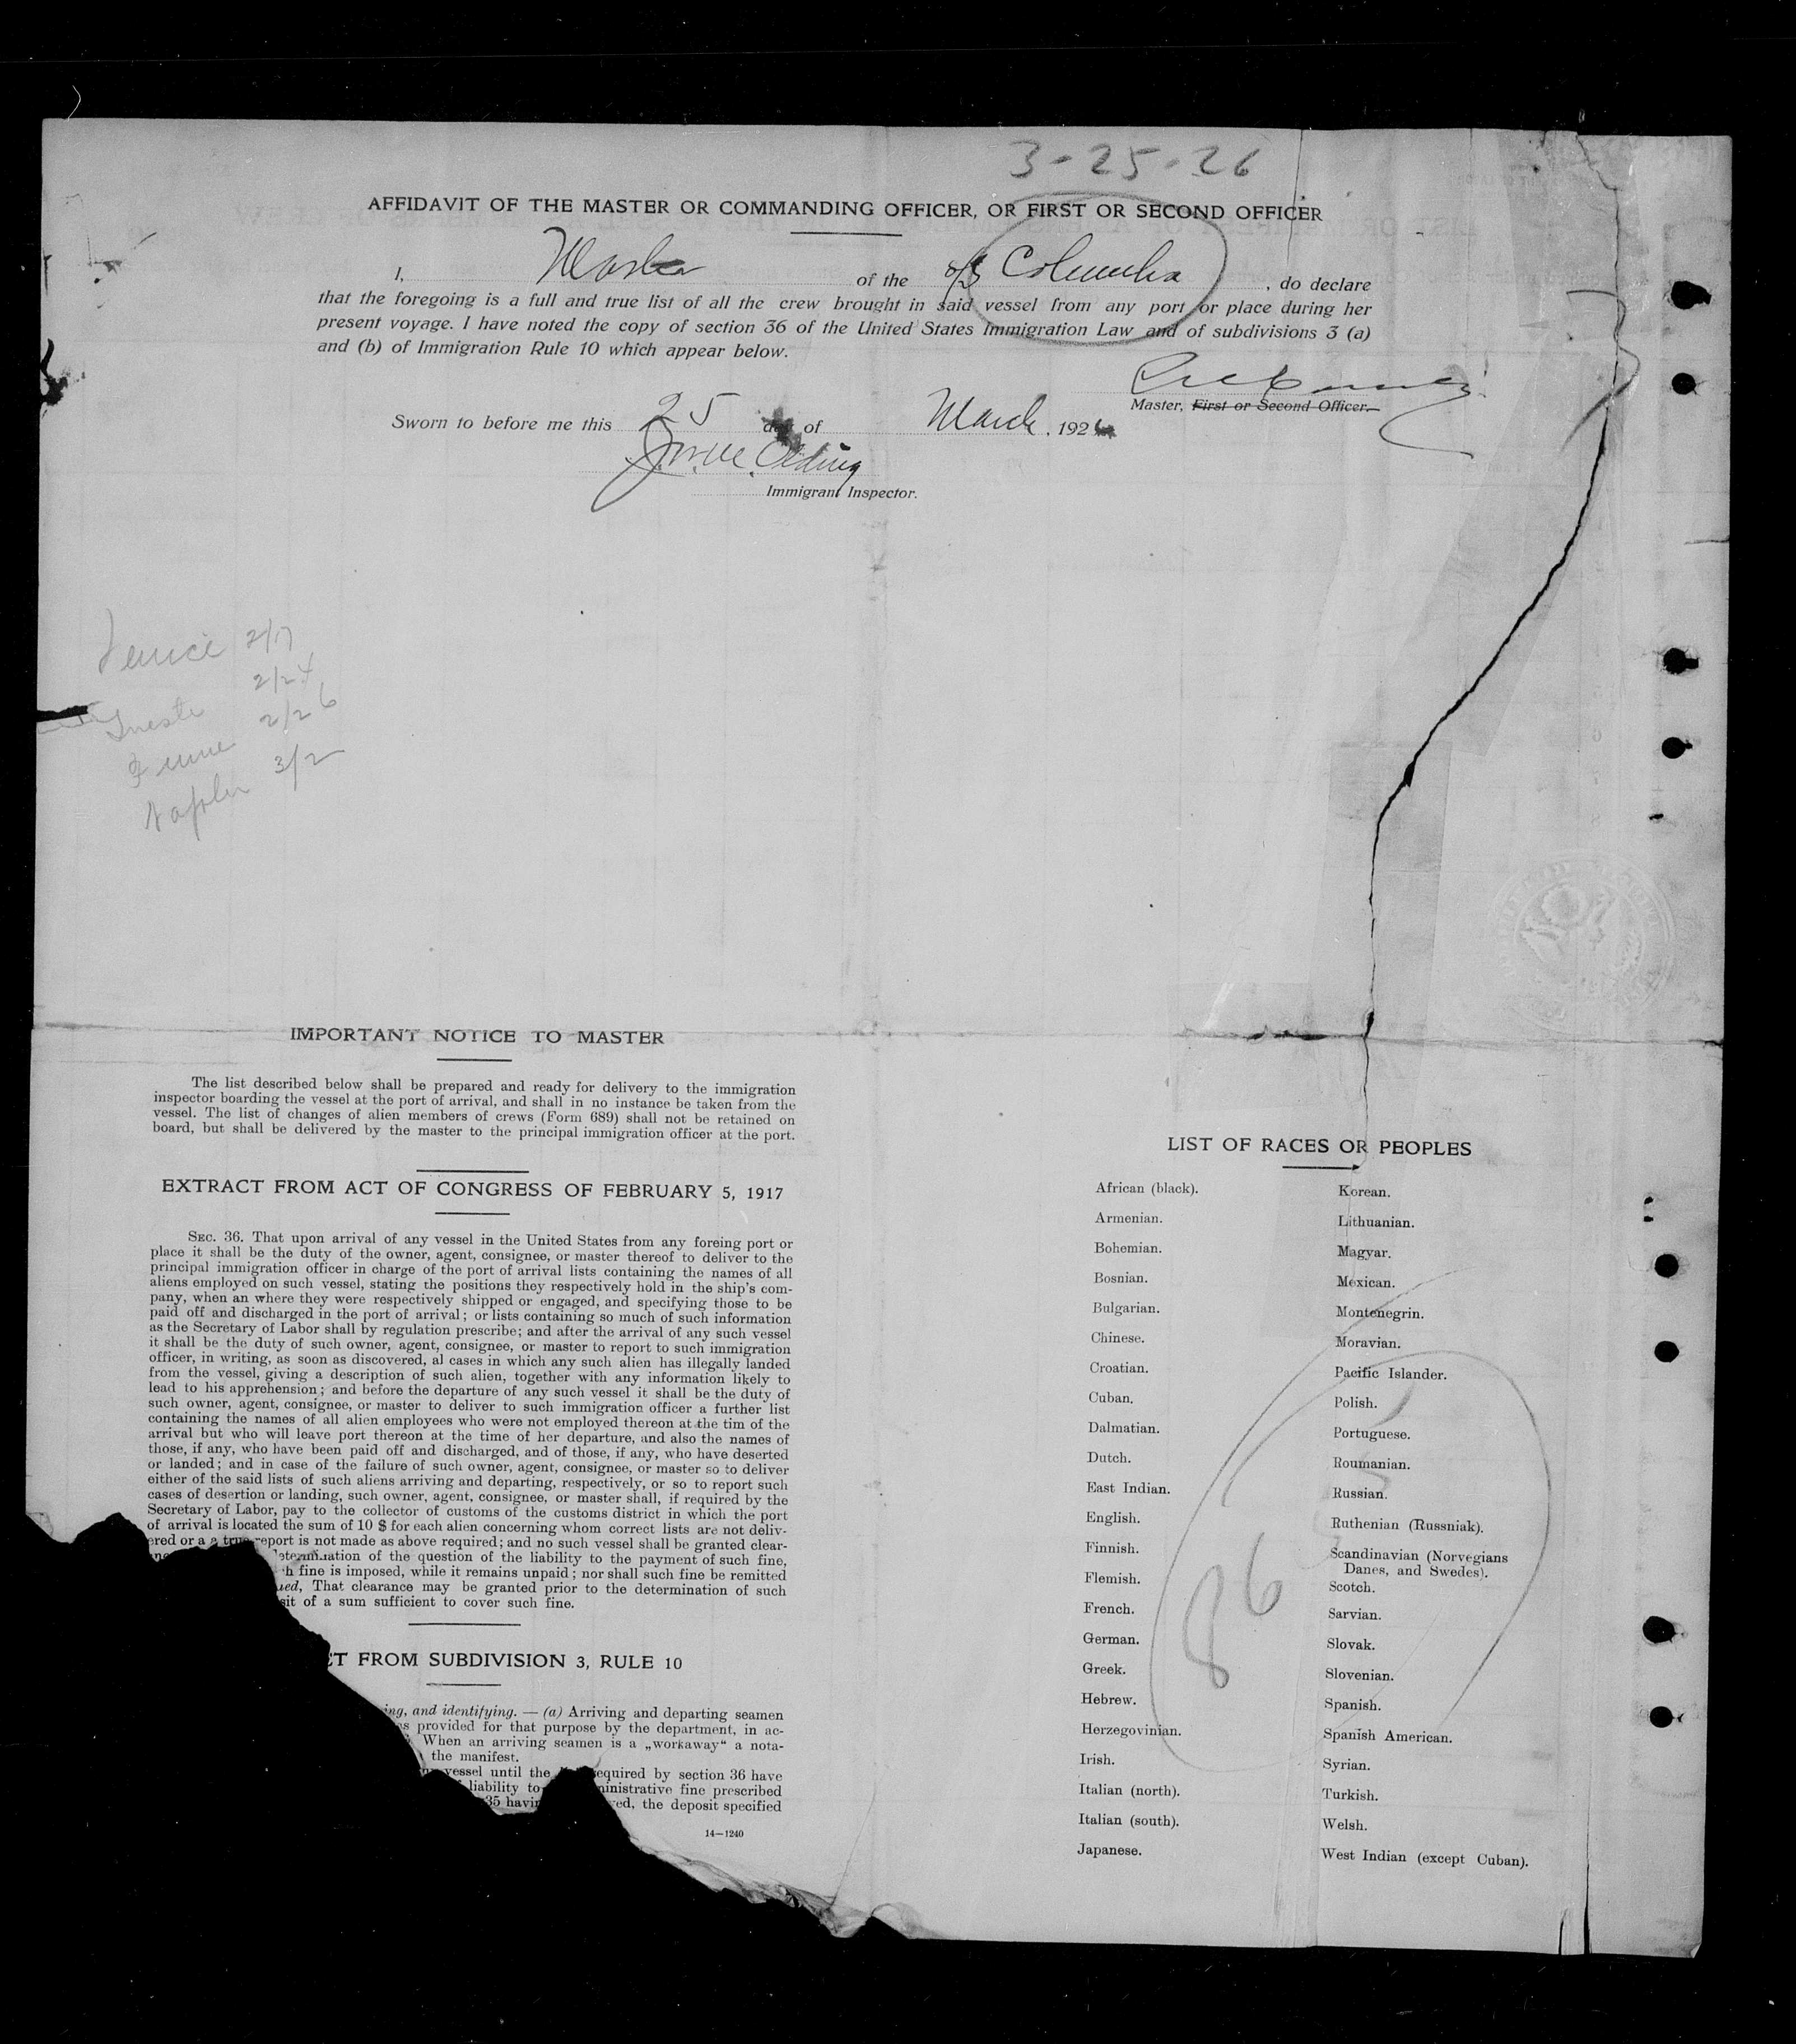 3-25-26
AFFIDAVIT OF THE MASTER OR COMMANDING OFFICER, OR FIRST OR SECOND OFFICER
I, Master of the s/s Columbia, do declare
that the foregoing is a full and true list of all the crew brought in said vessel from any port or place during her
present voyage. I have noted the copy of section 36 of the United States Immigration Law and of subdivisions 3 (a)
and (b) of Immigration Rule 10 which appear below.
Master, First or Second Officer.
Sworn to before me this 25 day of March, 1926
Immigrant Inspector.
Venice 2/17
Trieste 2/24
Fiume 2/26
Naples 3/2
IMPORTANT NOTICE TO MASTER
The list described below shall be prepared and ready for delivery to the immigration
inspector boarding the vessel at the port of arrival, and shall in no instance be taken from the
vessel. The list of changes of alien members of crews (Form 689) shall not be retained on
board, but shall be delivered by the master to the principal immigration officer at the port.
EXTRACT FROM ACT OF CONGRESS OF FEBRUARY 5, 1917
SEC. 36. That upon arrival of any vessel in the United States from any foreing port or
place it shall be the duty of the owner, agent, consignee, or master thereof to deliver to the
principal immigration officer in charge of the port of arrival lists containing the names of all
aliens employed on such vessel, stating the positions they respectively hold in the ship's com-
pany, when an where they were respectively shipped or engaged, and specifying those to be
paid off and discharged in the port of arrival; or lists containing so much of such information
as the Secretary of Labor shall by regulation prescribe; and after the arrival of any such vessel
it shall be the duty of such owner, agent, consignee, or master to report to such immigration
officer, in writing, as soon as discovered, al cases in which any such alien has illegally landed
from the vessel, giving a description of such alien, together with any information likely to
lead to his apprehension; and before the departure of any such vessel it shall be the duty of
such owner, agent, consignee, or master to deliver to such immigration officer a further list
containing the names of all alien employees who were not employed thereon at the tim of the
arrival but who will leave port thereon at the time of her departure, and also the names of
those, if any, who have been paid off and discharged, and of those, if any, who have deserted
or landed; and in case of the failure of such owner, agent, consignee, or master so to deliver
either of the said lists of such aliens arriving and departing, respectively, or so to report such
cases of desertion or landing, such owner, agent, consignee, or master shall, if required by the
Secretary of Labor, pay to the collector of customs of the customs district in which the port
of arrival is located the sum of 10 $ for each alien concerning whom correct lists are not deliv-
ered or a a true report is not made as above required; and no such vessel shall be granted clear-
determination of the question of the liability to the payment of such fine,
h fine is imposed, while it remains unpaid; nor shall such fine be remitted
ued, That clearance may be granted prior to the determination of such
sit of a sum sufficient to cover such fine.
CT FROM SUBDIVISION 3, RULE 10
ing, and identifying. — (a) Arriving and departing seamen
as provided for that purpose by the department, in ac-
When an arriving seamen is a „workaway" a nota-
the manifest.
vessel until the required by section 36 have
liability to ministrative fine prescribed
35 havin ved, the deposit specified
14—1240
LIST OF RACES OR PEOPLES
African (black).
Armenian.
Bohemian.
Bosnian.
Bulgarian.
Chinese.
Croatian.
Cuban.
Dalmatian.
Dutch.
East Indian.
English.
Finnish.
Flemish.
French.
German.
Greek.
Hebrew.
Herzegovinian.
Irish.
Italian (north).
Italian (south).
Japanese.
Korean.
Lithuanian.
Magyar.
Mexican.
Montenegrin.
Moravian.
Pacific Islander.
Polish.
Portuguese.
Roumanian.
Russian.
Ruthenian (Russniak).
Scandinavian (Norvegians
Danes, and Swedes).
Scotch.
Sarvian.
Slovak.
Slovenian.
Spanish.
Spanish American.
Syrian.
Turkish.
Welsh.
West Indian (except Cuban).
86